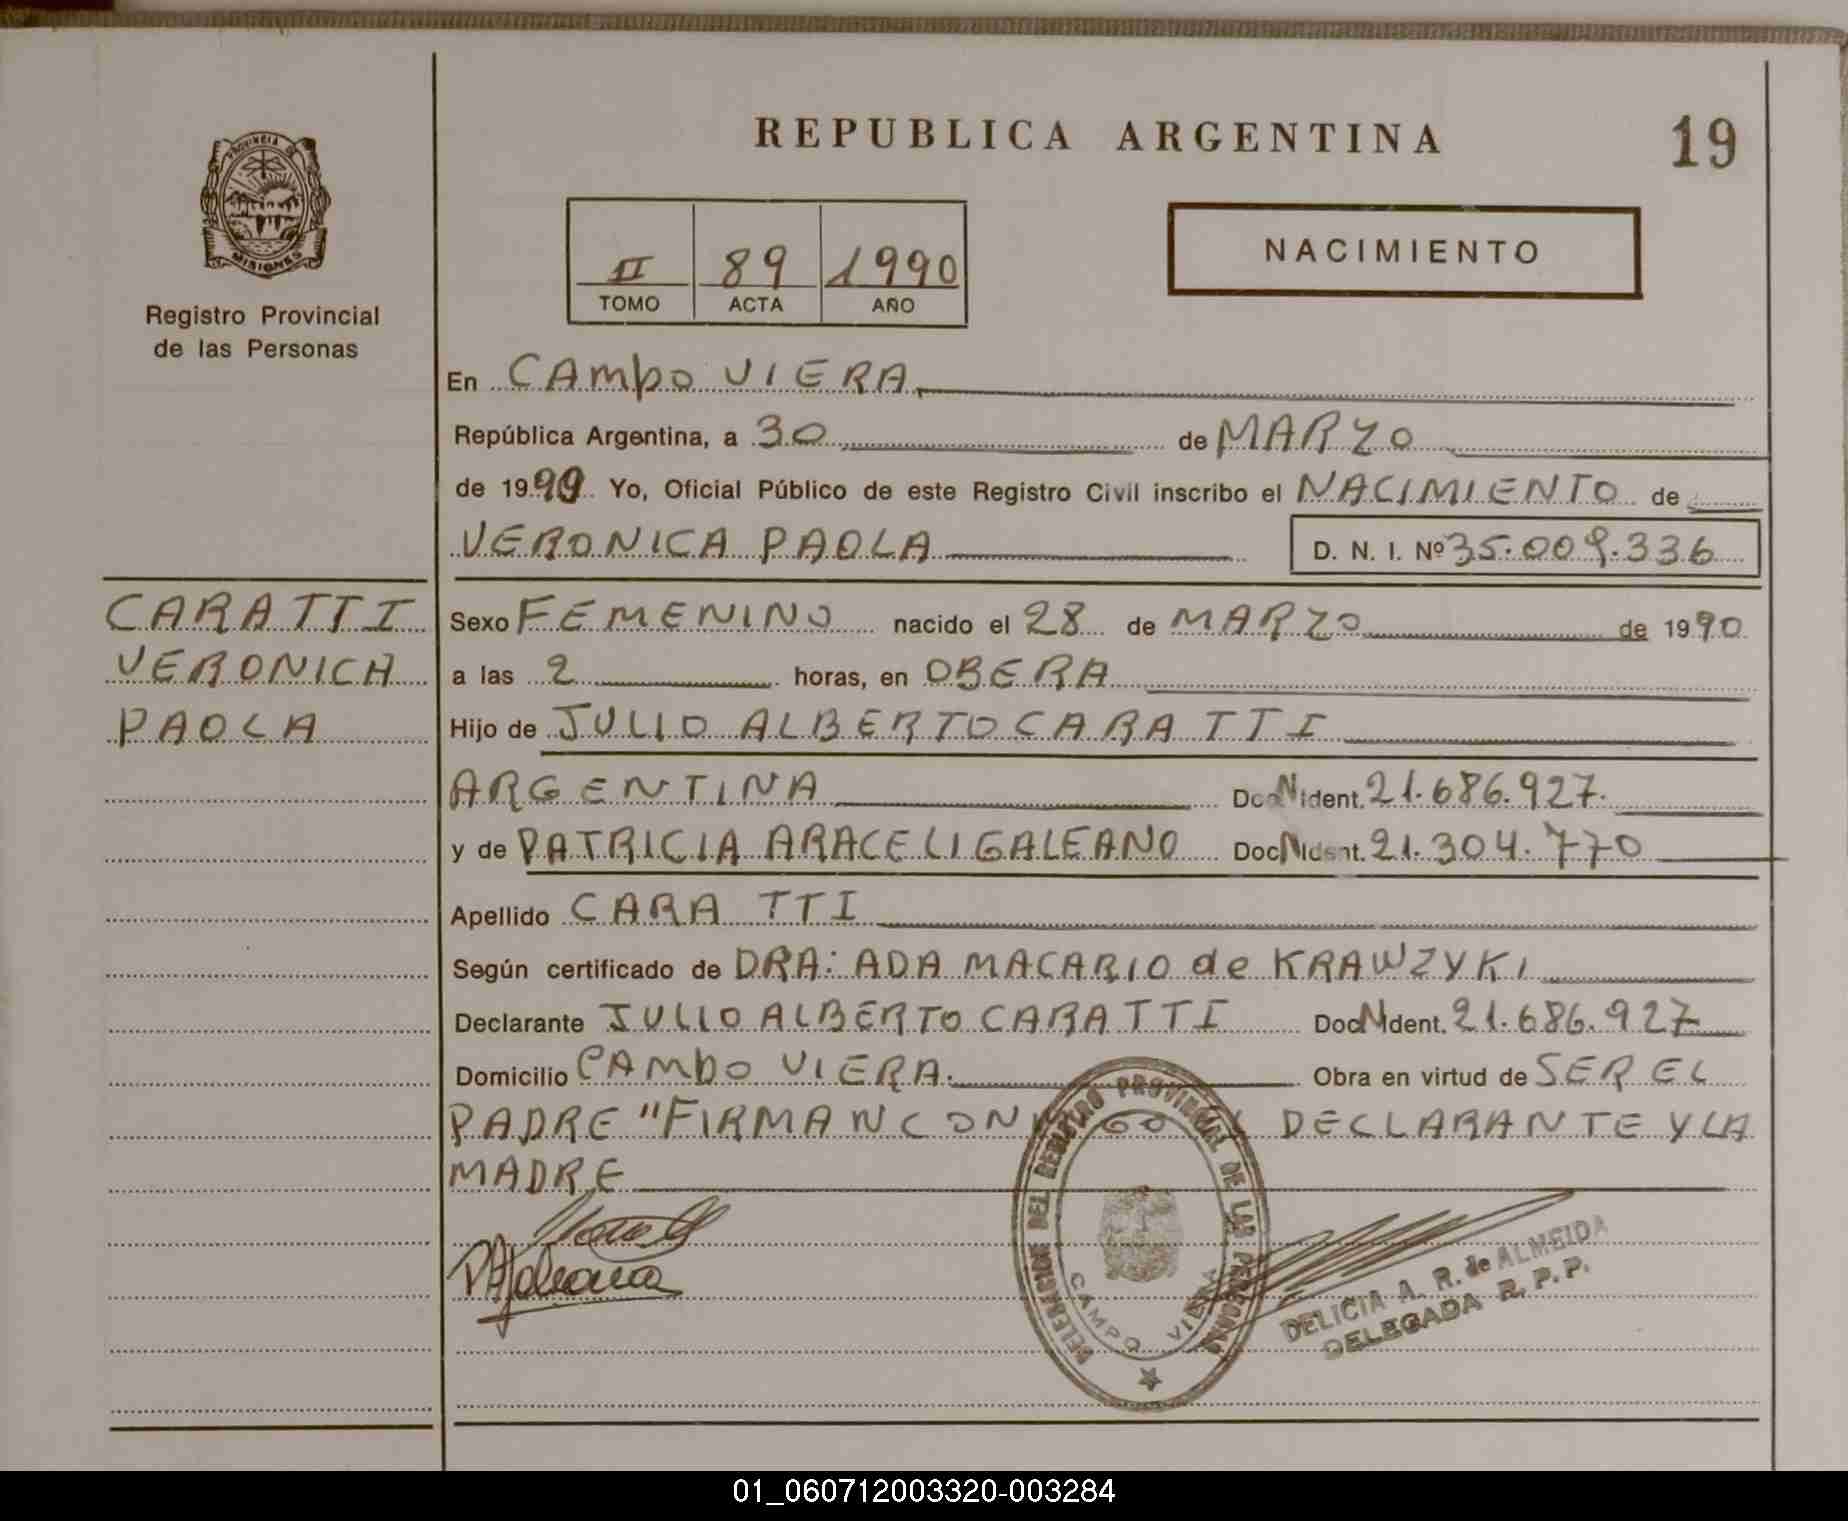 REPUBLICA ARGENTINA
19
PROVINCIA DE
MISIONES
Registro Provincial
de las Personas
II 89 1990
TOMO ACTA AÑO
NACIMIENTO
En CAMPO VIERA
República Argentina, a 30 de MARZO
de 1990 Yo, Oficial Público de este Registro Civil inscribo el NACIMIENTO de
VERONICA PAOLA D. N. I. Nº 35.009.336
CARATTI
VERONICA
PAOLA
Sexo FEMENINO nacido el 28 de MARZO de 1990
a las 2 horas, en OBERA
Hijo de JULIO ALBERTO CARATTI
ARGENTINA Doc N Ident. 21.686.927.
y de PATRICIA ARACELI GALEANO Doc N Ident. 21.304.770
Apellido CARATTI
Según certificado de DRA: ADA MACARIO de KRAWZYKI
Declarante JULIO ALBERTO CARATTI Doc N Ident. 21.686.927
Domicilio CAMPO VIERA. Obra en virtud de SER EL
PADRE "FIRMAN CONMIGO DECLARANTE Y LA
MADRE
DELEGACION DEL REGISTRO PROVINCIAL DE LAS PERSONAS
CAMPO VIERA
DELICIA A. R. de ALMEIDA
DELEGADA R. P. P.
01_060712003320-003284